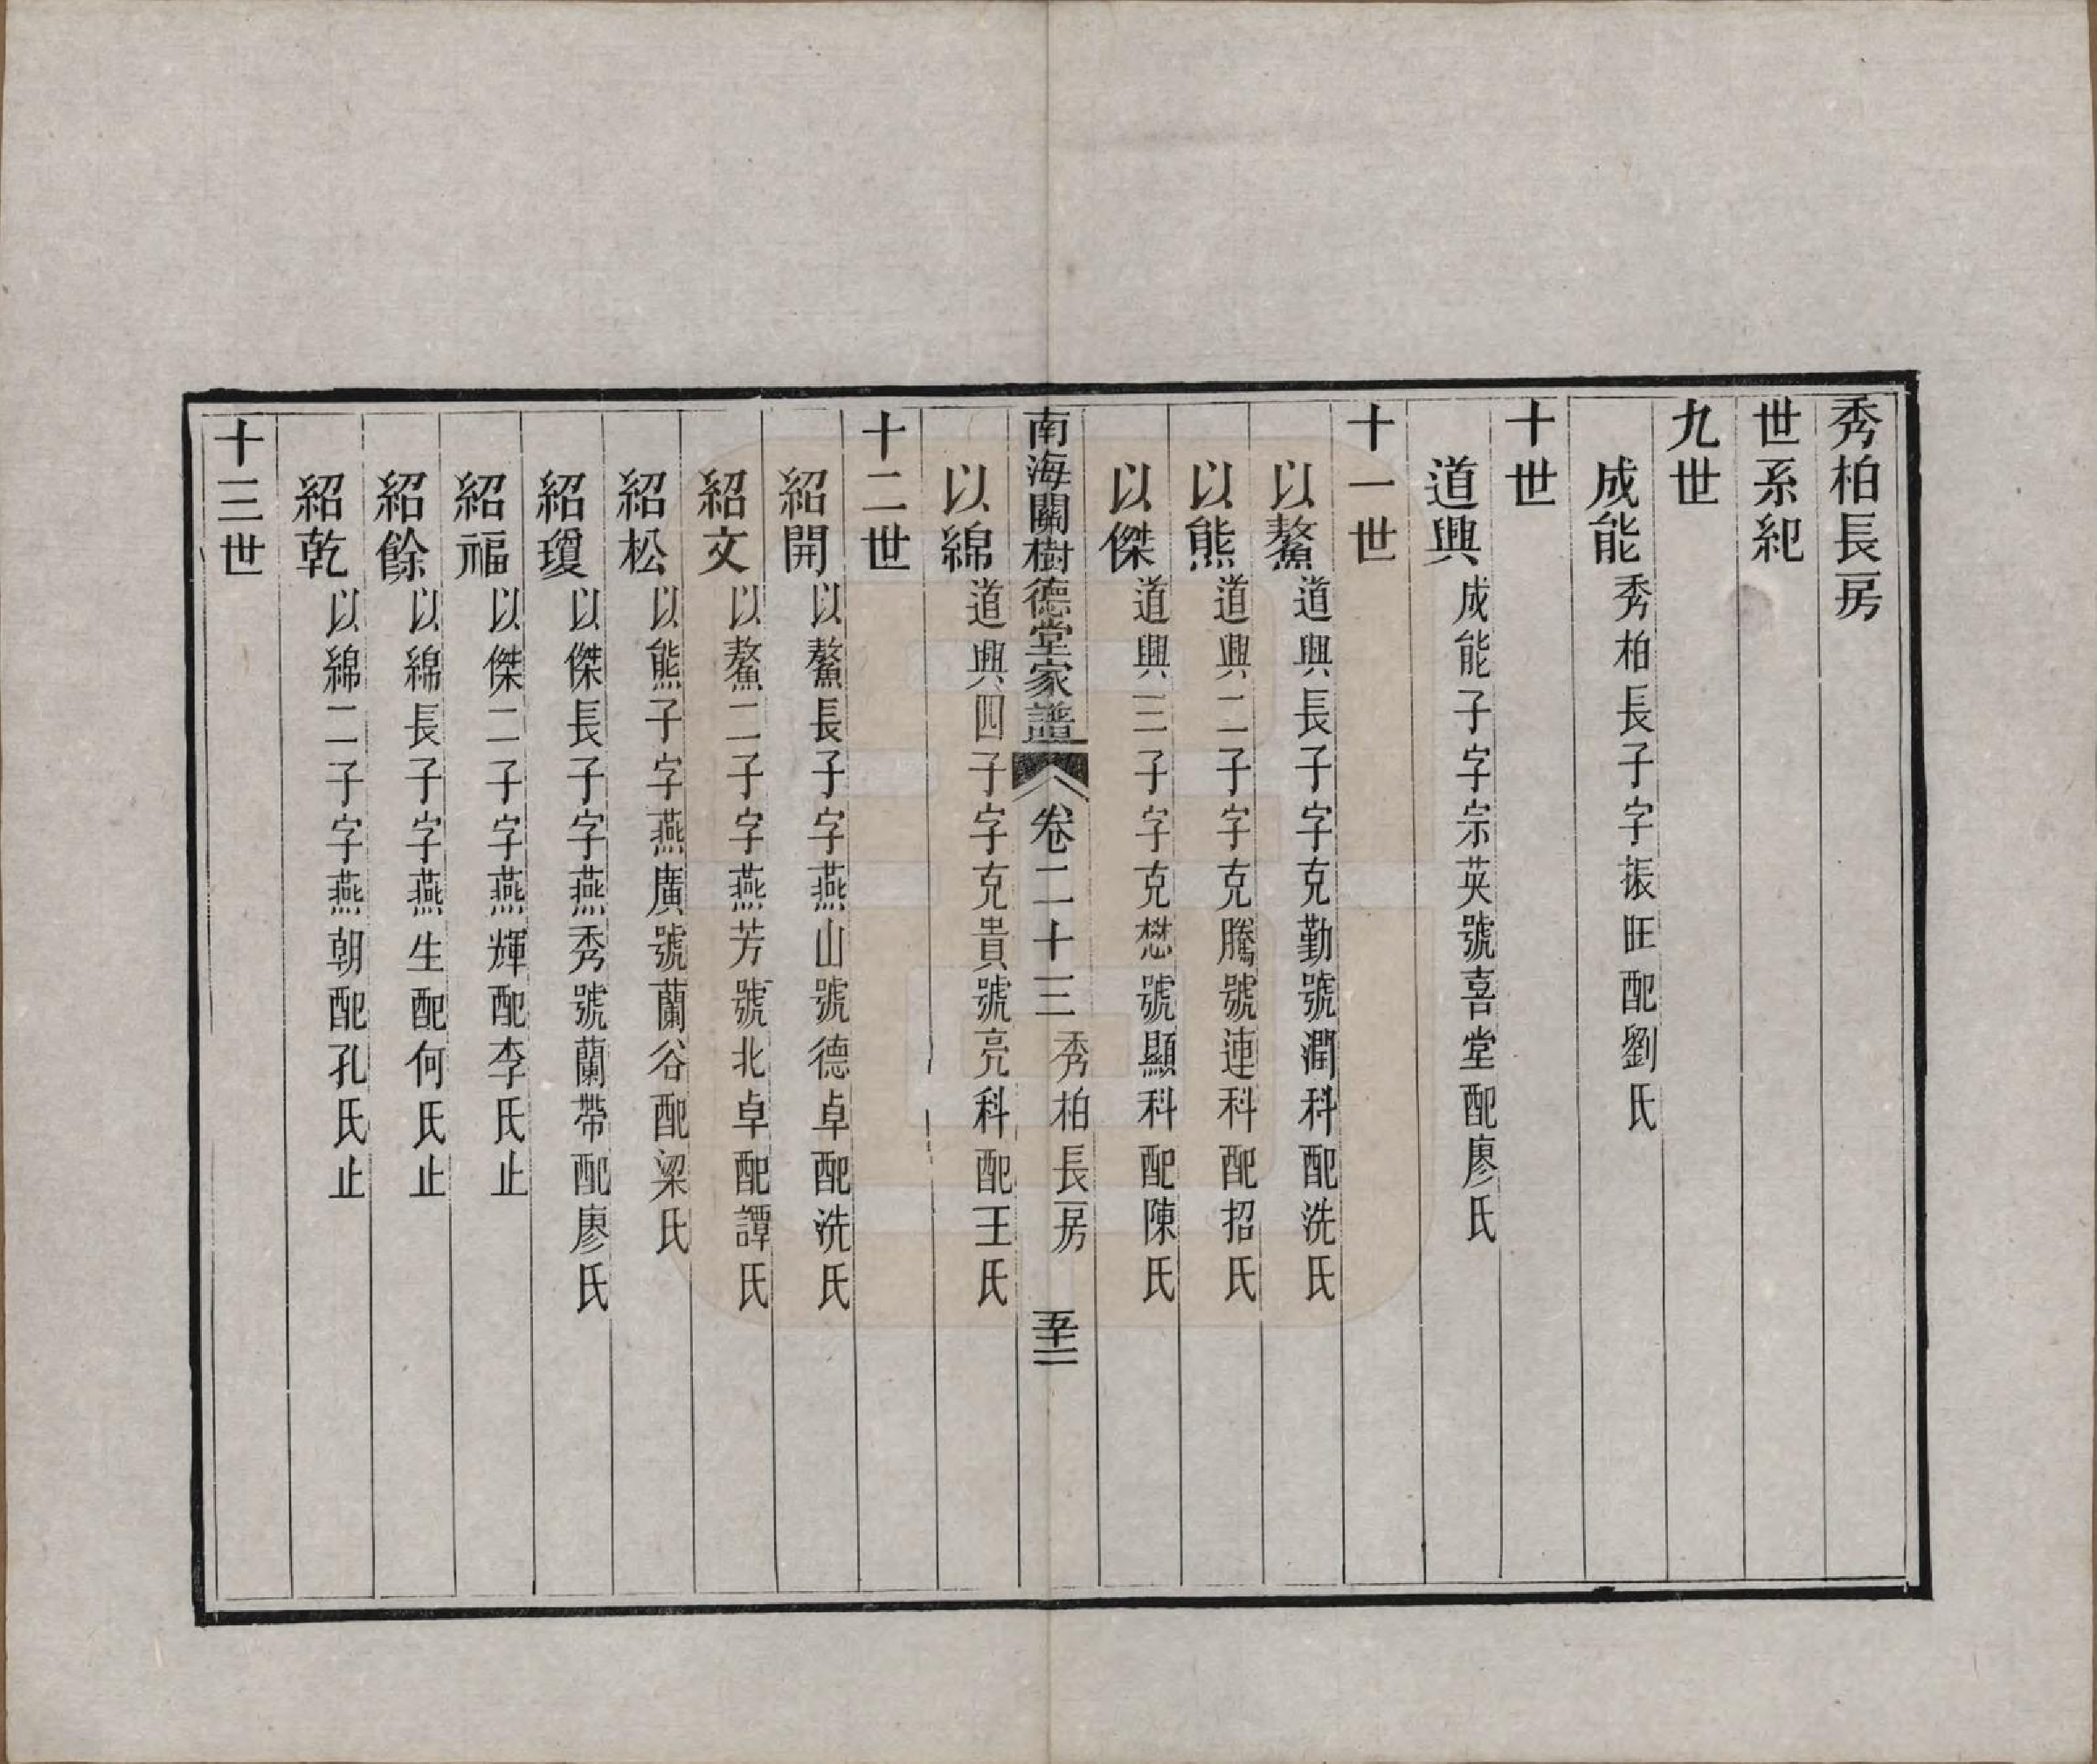 秀柏長房
世系紀
九世
成能秀柏長子字振旺配劉氏
十世
道興成能子字宗英號喜堂配廖氏
十一世
以鰲道興長子字克勤號潤科配洗氏
以熊道興二子字克騰號連科配招氏
以傑道興三子字克懋號顯科配陳氏
南海關樹德堂家譜 卷二十三 秀柏長房 五十二
以綿道興四子字克貴號亮科配王氏
十二世
紹開以鰲長子字燕山號德卓配洗氏
紹文以鰲二子字燕芳號北卓配譚氏
紹松以熊子字燕廣號蘭谷配梁氏
紹瓊以傑長子字燕秀號蘭帶配廖氏
紹福以傑二子字燕輝配李氏止
紹餘以綿長子字燕生配何氏止
紹乾以綿二子字燕朝配孔氏止
十三世